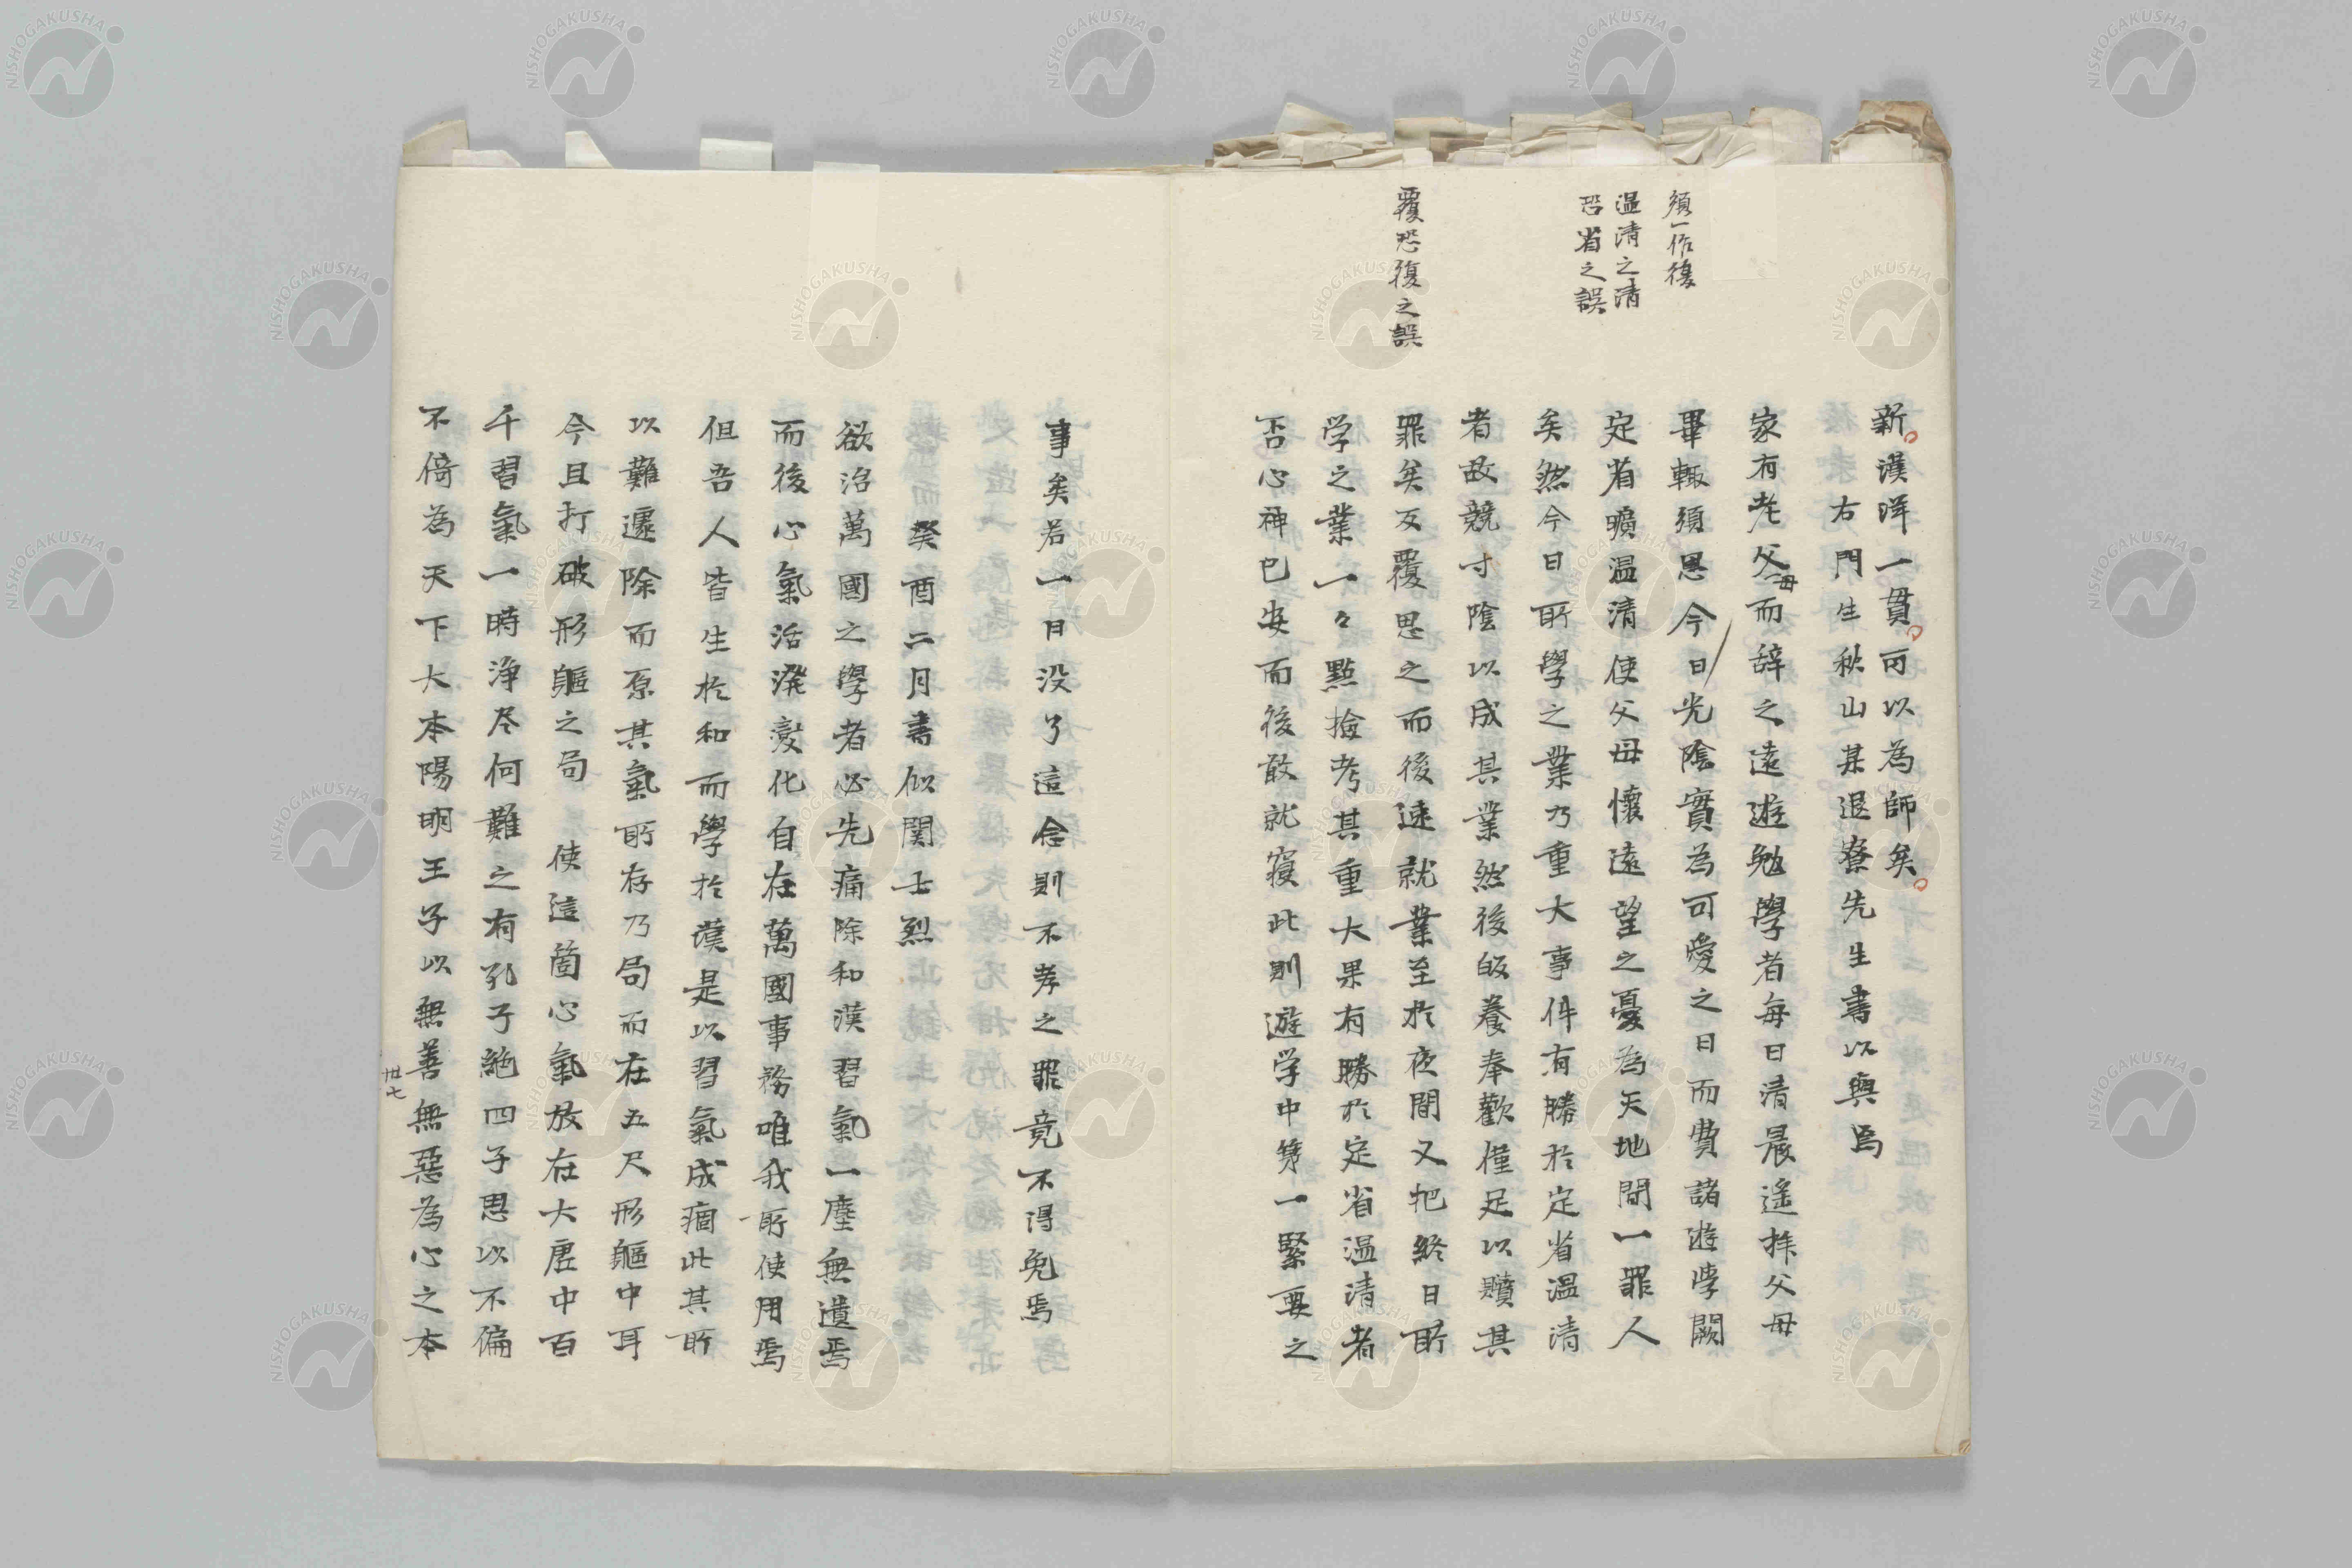 須一作複
温清之清
恐省之誤
覆恐復之誤
新漢洋一貫可以為師矣
右門生秋山某退寮先生書以與焉
家有老父母而辞之遠遊勉學者每日清晨遙拝父母
畢輙須思今日光陰實為可愛之日而費諸遊学闕
定省曠温清使父母懷遠望之憂為天地間一罪人
矣然今日所學之業乃重大事件有勝於定省温清
者故競寸陰以成其業然後皈養奉歡僅足以贖其
罪矣反覆思之而後速就業至於夜間又把終日所
学之業一々點撿考其重大果有勝於定省温清者
否心神已安而後敢就寝此則遊学中第一緊要之
事矣若一日没了這念則不孝之罪竟不得免焉
癸酉二月書似関士烈
欲治萬國之學者必先痛除和漢習氣一塵無遺焉
而後心氣活潑變化自在萬國事務唯我所使用焉
但吾人皆生於和而學於漢是以習氣成痼此其所
以難遽除而原其氣所存乃局而在五尺形軀中耳
今且打破形軀之局使這箇心氣放在大虚中百
千習氣一時浄尽何難之有孔子絶四子思以不偏
不倚為天下大本陽明王子以無善無惡為心之本
卅七
NISHOGAKUSHA